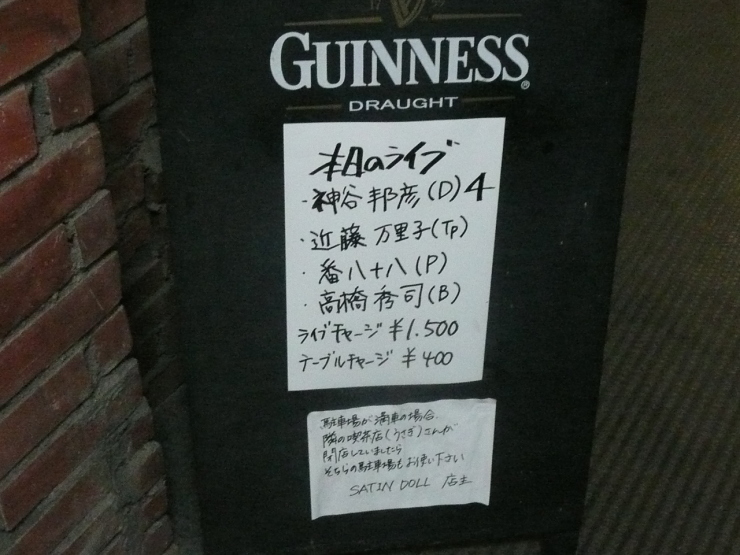 17 59
GUINNESS
DRAUGHT
本日のライブ
・神谷邦彦(D)4
・近藤万里子(Tp)
・番八十八(P)
・高橋秀司(B)
ライブチャージ ¥1.500
テーブルチャージ ¥400
駐車場が満車の場合、
隣の喫茶店(うさぎ)さんが
閉店していましたら
そちらの駐車場もお使い下さい
SATIN DOLL 店主